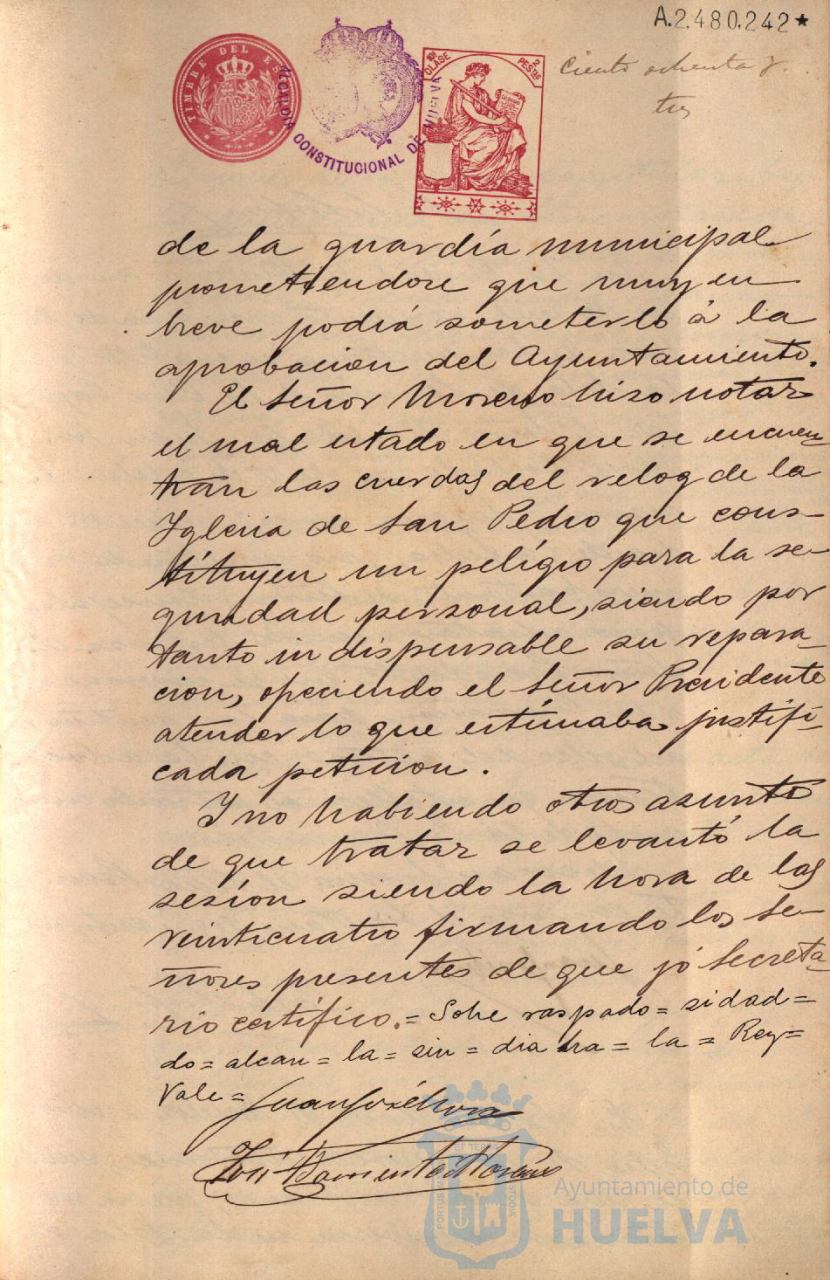 A.2.480.242★
TIMBRE DEL ESTADO
ALCALDÍA CONSTITUCIONAL DE HUELVA
CLASE 2 PESTAS
Ciento ochenta y
tres
de la guardia municipal
prometiendose que muy en
breve podiá someterlo á la
aprobacion del Ayuntamiento.
El Señor Moreno hizo notar
el mal estado en que se encuen
tran las cuerdas del relog de la
Iglesia de San Pedro que cons-
tituyen un peligro para la se-
guridad personal, siendo por
tanto indispensable su repara-
cion, ofreciendo el Señor Presidente
atender lo que estimaba justifi-
cada peticion.
Y no habiendo otros asuntos
de que tratar se levantó la
sesión siendo la hora de las
veinticuatro firmando los Se-
ñores presentes de que yó Secreta-
rio certifico.= Sobre raspado= sidad=
do= alcan= la= sin= dia = la = Rey=
Vale= Juan José Mora
José Barrientos
Ayuntamiento de
HUELVA